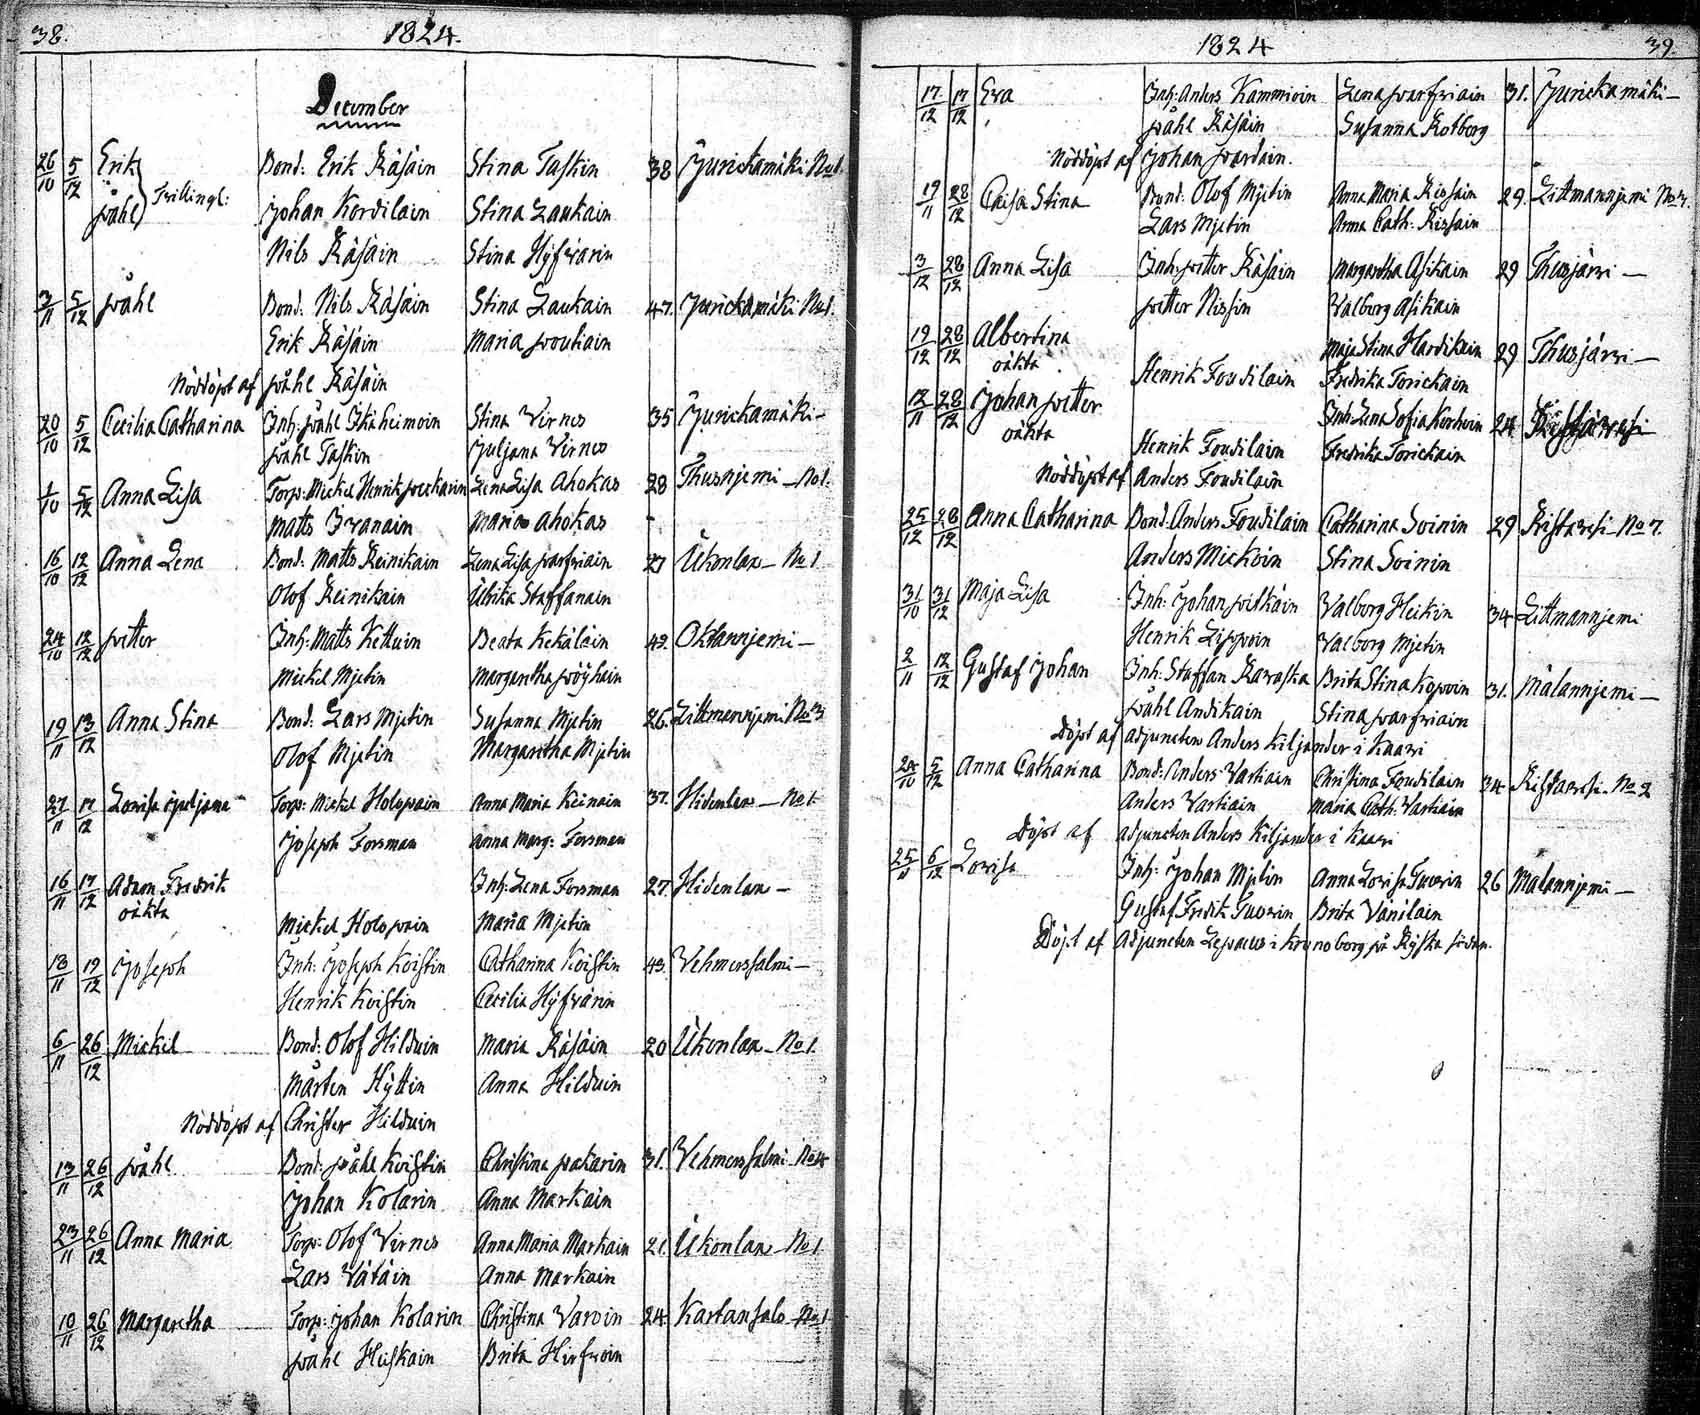 38. 1824.
December
26/10 5/12 Erik Bond: Erik Räsäin Stina Taskin 38 Jurickamäki No 1.
Påhl Tvillingl: Johan Korvilain Stina Laukain
Nils Räsäin Stina Hyfvärin
3/11 5/12 Påhl Bond: Nils Räsäin Stina Laukain 47. Jurickamäki No 1.
Erik Räsäin Maria Poutiain
Nöddöpt af Påhl Räsäin
20/10 5/12 Cecilia Catharina Inh: Påhl Ikäheimoin Stina Virnes 35 Jurickamäki –
Påhl Taskin Juljana Virnes
1/10 5/12 Anna Lisa Torp: Mickel Henrik Peckarin Lena Lisa Ahokas 28 Thusnjemi – No 1.
Matts Ivanain Maria Ahokas
16/10 12/12 Anna Lena Bond: Matts Reinikain Lena Lisa Parfviain 27 Ukonlax – No 1
Olof Reinikain Ulrika Staffanain
24/10 12/12 Petter Inh: Matts Kettuin Beata Kekäläin 42. Oklannjemi –
Mickel Mjetin Margaretha Pöyhäin
19/11 13/12 Anna Stina Bond: Lars Mjetin Susanna Mjetin 26. Littmannjemi No 3
Olof Mjetin Margaretha Mjetin
27/11 17/12 Lovisa Juljana Torp: Mickel Holopain Anna Maria Keinain 37. Hidenlax – No 1.
Joseph Forsman Anna Marg: Forsman
16/11 17/12 Adam Fredrik Inh: Lena Forsman 27. Hidenlax –
oäkta
Mickel Holopain Maria Mjetin
18/11 19/12 Joseph Inh: Joseph Koistin Catharina Koistin 43. Vehmersalmi –
Henrik Koistin Cecilia Hyfvärin
6/11 26/12 Mickel Bond: Olof Hilduin Maria Räsäin 20 Ukonlax – No 1.
Mårten Hyttin Anna Hilduin
Nöddöpt af Christer Hilduin
13/11 26/12 Påhl Bond: Påhl Koistin Christina Pakarin 31. Vehmersalmi No 4
Johan Kolarin Anna Markain
23/11 26/12 Anna Maria Torp: Olof Virnes Anna Maria Markain 21. Ukonlax – No 1.
Lars Vätäin Anna Markain
10/11 26/12 Margaretha Torp: Johan Kolarin Christina Varoin 24. Kartansalo No 1
Påhl Huskain Brita Hirfvoin
1824 39.
17/12 17/12 Eva Inh: Anders Kammioin Lena Parfviain 31. Jurickamäki –
Påhl Räsäin Susanna Rotborg
Nöddöpt af Johan Pardain.
19/11 28/12 Caisa Stina Bond: Olof Mjetin Anna Maria Rissain 29. Littmannjemi No 7.
Lars Mjetin Anna Cath: Rissain
3/12 28/12 Anna Lisa Inh: Petter Räsäin Margaretha Asikain 29 Thusjärvi –
Petter Nissin Valborg Asikain
19/12 28/12 Albertina Maja Stina Hardikain 29 Thusjärvi –
oäkta
Henrik Foudilain Fredrika Torickain
12/11 28/12 Johan Petter Inh: Lena Sofia Korhoin 24 Ristavesi
oäkta
Henrik Foudilain Fredrika Torickain
Nöddöpt af Anders Foudilain
25/12 28/12 Anna Catharina Bond: Anders Foudilain Catharina Soinin 29 Ristavesi No 7.
Anders Mickoin Stina Soinin
31/10 31/12 Maja Lisa Inh: Johan Pitkäin Valborg Heikin 34 Littmannjemi
Henrik Lippoin Valborg Mjetin
2/11 12/12 Gustaf Johan Inh: Staffan Karaska Brita Stina Kopoin 31. Malannjemi –
Påhl Andikain Stina Parfviain
Döpt af adjuncten Anders Kiljander i Kaavi
24/10 5/12 Anna Catharina Bond: Anders Vartiain Christina Foudilain 34 Ristavesi No 2
Anders Vartiain Maria Cath: Vartiain
Döpt af adjuncten Anders Kiljander i Kaavi
25/11 6/12 Lovisa Inh: Johan Mjelin Anna Lovisa Tuovin 26 Malannjemi –
Gustaf Fredik Tuovin Brita Vänilain
Döpt af Adjuncten Lepaeus i Kronoborg på Ryska sidan.